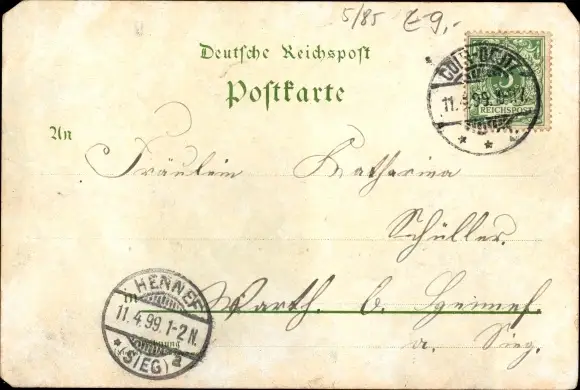 5/85 E 9,-
Deutsche Reichspost
Postkarte
5
REICHSPOST
11.4.99.
* *
An
Fräulein Katharina
Schüller.
Warth. b. Hennef.
a. Sieg.
HENNEF
11.4.99.1-2N.
* (SIEG) *